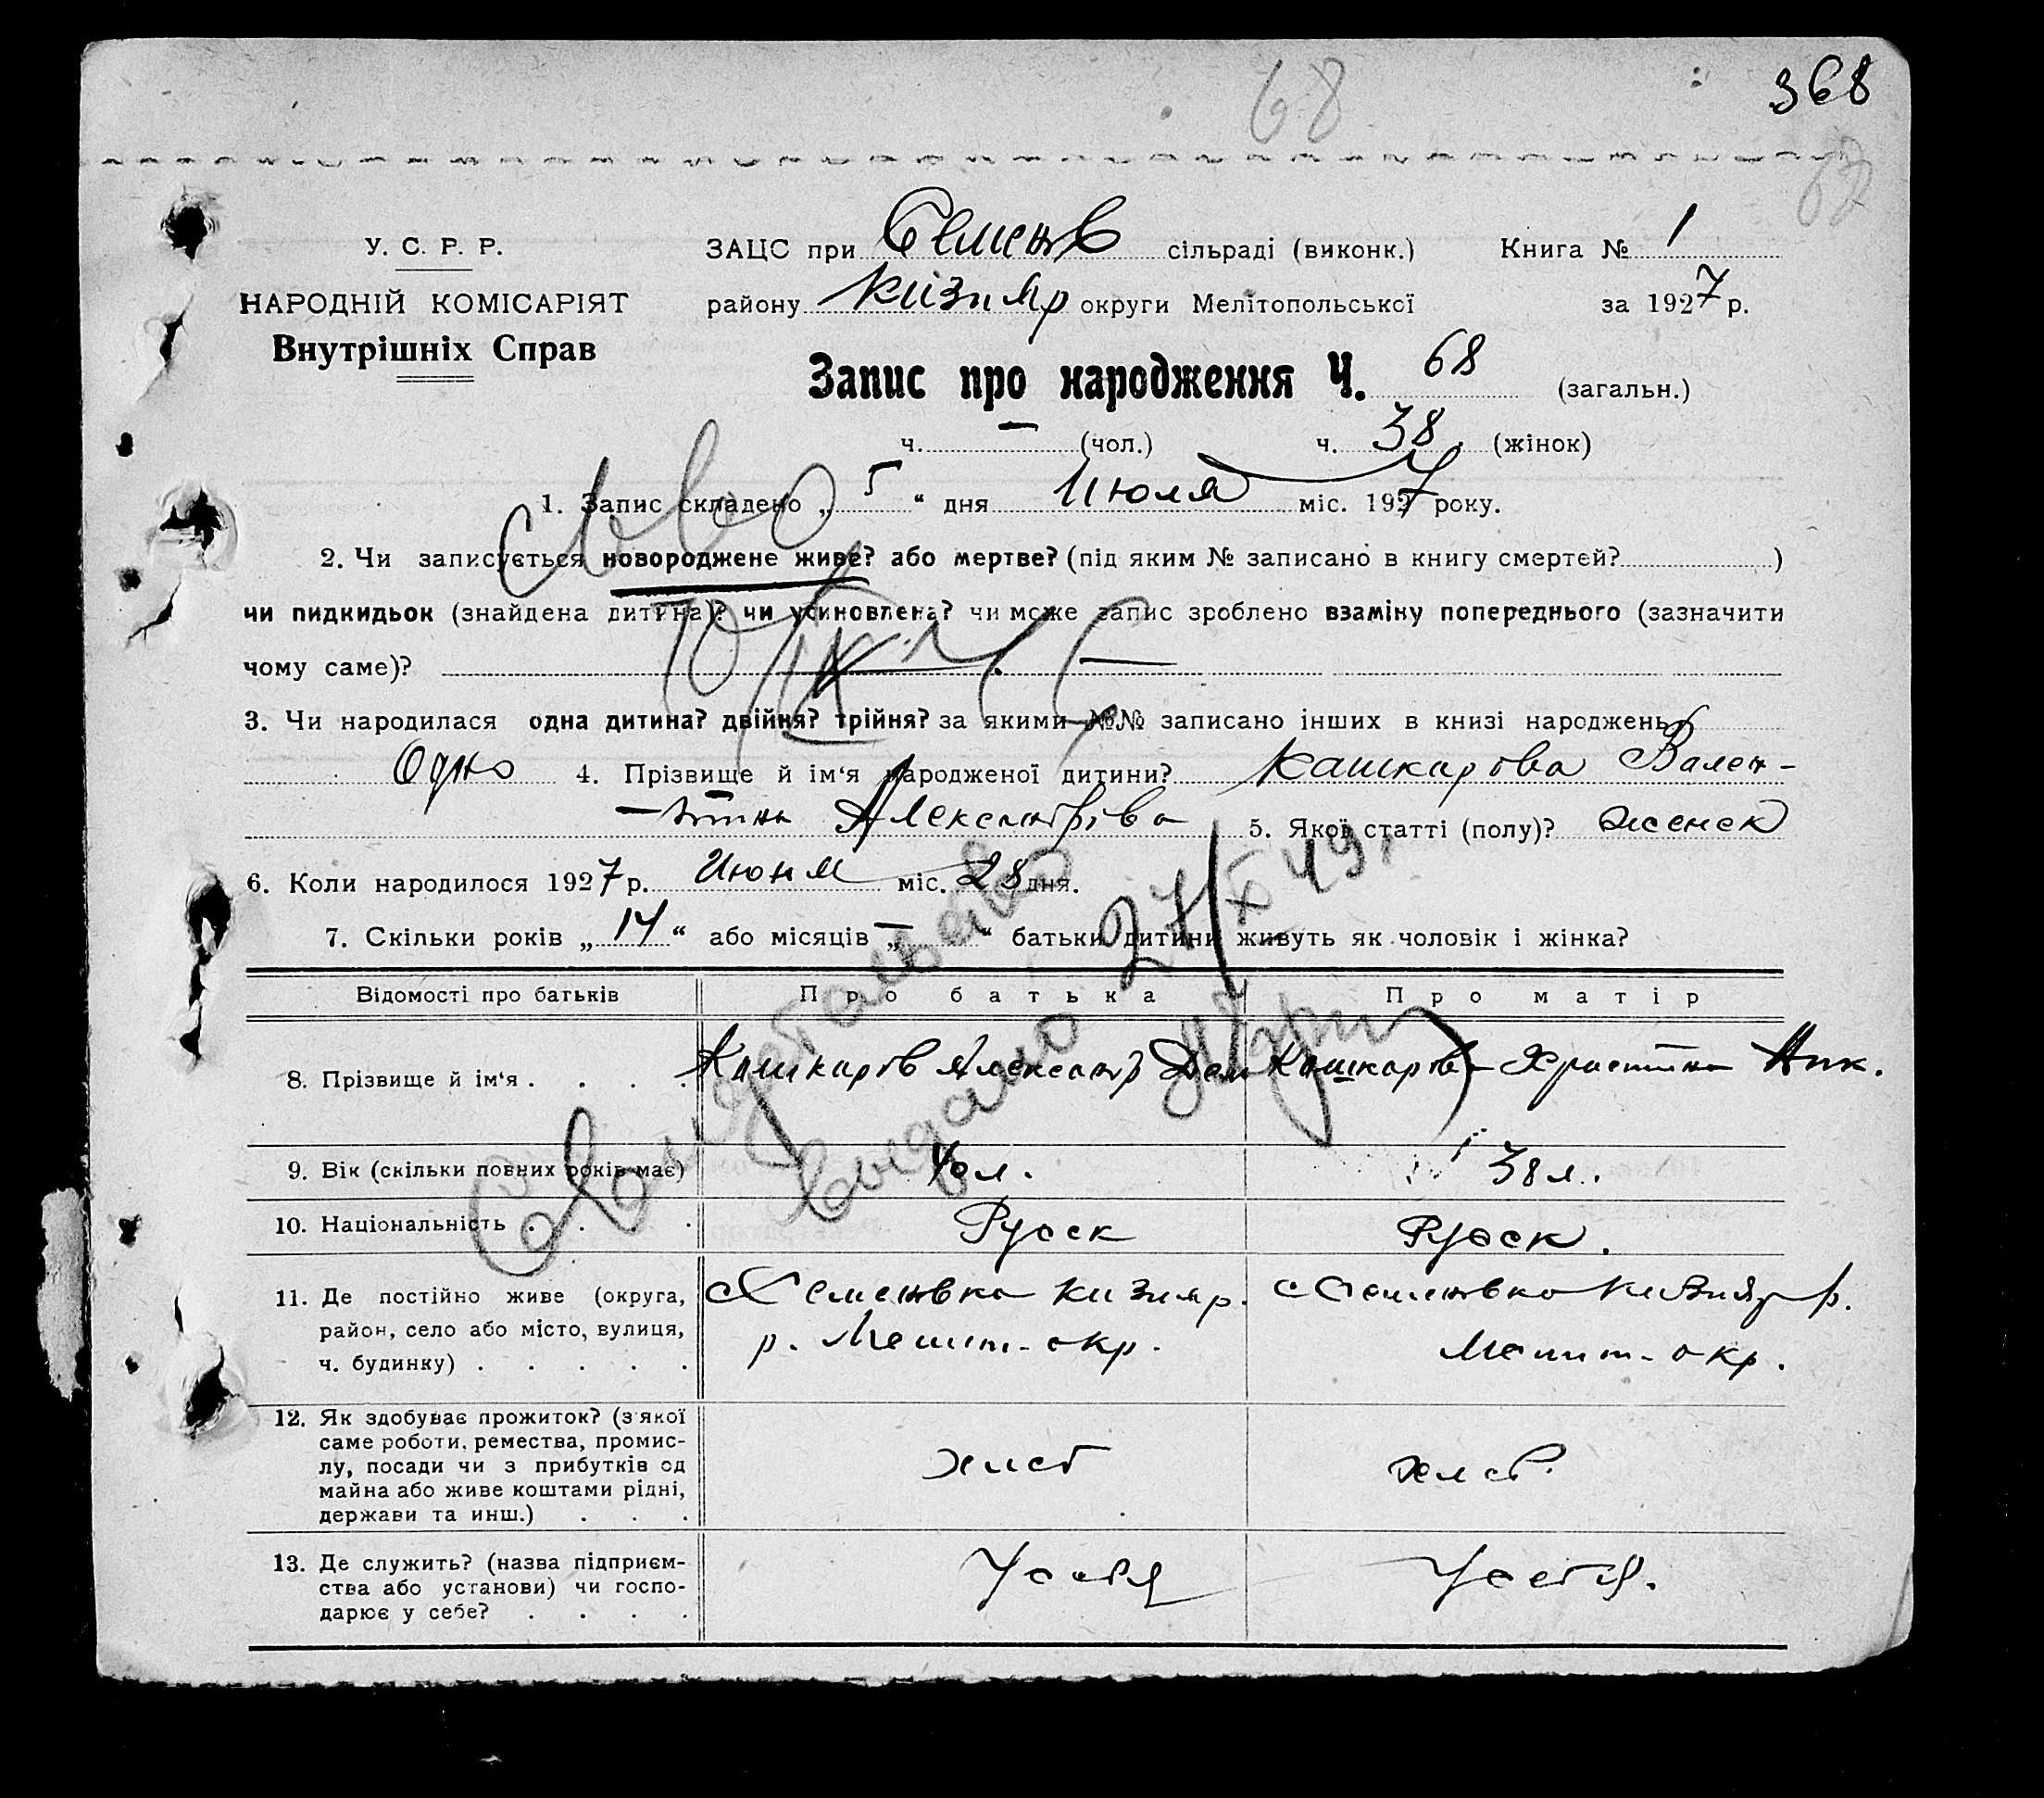 68
368
68
У. С. Р. Р.
НАРОДНІЙ КОМІСАРІЯТ
Внутрішніх Справ
ЗАЦС при Семенов сільраді (виконк.) Книга № 1
району Кизияр округи Мелітопольської за 1927 р.
Запис про народження Ч. 68 (загальн.)
ч. — (чол.) ч. 38 (жінок)
1. Запис складено „ 5 “ дня Июля міс. 1927 року.
2. Чи записується новороджене живе? або мертве? (під яким № записано в книгу смертей? )
чи пидкидьок (знайдена дитина)? чи усиновлена? чи може запис зроблено взаміну попереднього (зазначити
чому саме)? —
3. Чи народилася одна дитина? двійня? трійня? за якими №№ записано інших в книзі народжень
Одно 4. Прізвище й ім‘я народженої дитини? Кашкарова Вален-
-тина Александрова 5. Якої статті (полу)? женск
6. Коли народилося 1927 р. Июня міс. 28 дня.
7. Скільки років „ 14 “ або місяців „ — “ батьки дитини живуть як чоловік і жінка?
Відомості про батьків Про батька Про матір
8. Прізвище й ім‘я . . . . Кашкаров Александр Дем Кашкарова Христина Ник.
9. Вік (скільки повних років має) 40 л. 38 л.
10. Національність . . . . Русск Русск.
11. Де постійно живе (округа, район, село або місто, вулиця, ч. будинку) . . . . .
с Семеновка Кизияр. р. Мелит. окр.
с Семеновка Кизияр р. Мелит. окр.
12. Як здобуває прожиток? (з якої
саме роботи, ремества, промис-
лу, посади чи з прибутків од
майна або живе коштами рідні,
держави та инш.) . . .
хлеб хлеб.
13. Де служить? (назва підприєм-
ства або установи) чи госпо-
дарює у себе? . . . .
У себя У себя.
Свидетельство
выдано 27/X 49